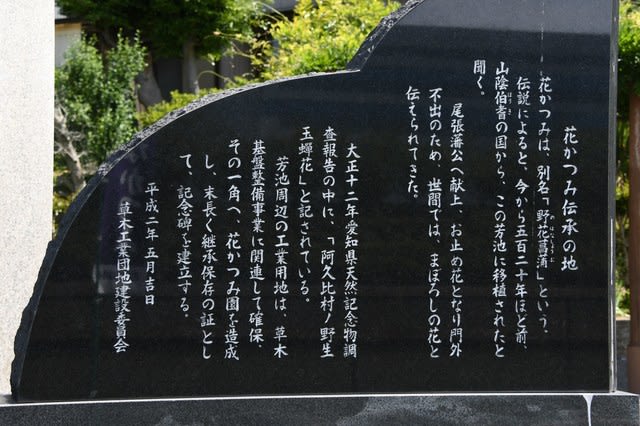 花かつみ伝承の地
花かつみは、別名「野花菖蒲」という、
のはなしょうぶ
伝説によると、今から五百二十年ほど前、
山陰伯耆の国から、この芳池に移植されたと
ほうき
聞く。
尾張藩公へ献上、お止め花となり門外
不出のため、世間では、まぼろしの花と
伝えられてきた。
大正十二年愛知県天然記念物調
査報告の中に、「阿久比村ノ野生
玉蝉花」と記されている。
芳池周辺の工業用地は、草木
基盤整備事業に関連して確保、
その一角へ、花かつみ園を造成
し、末長く継承保存の証とし
て、記念碑を建立する。
平成二年五月吉日
草木工業団地建設委員会